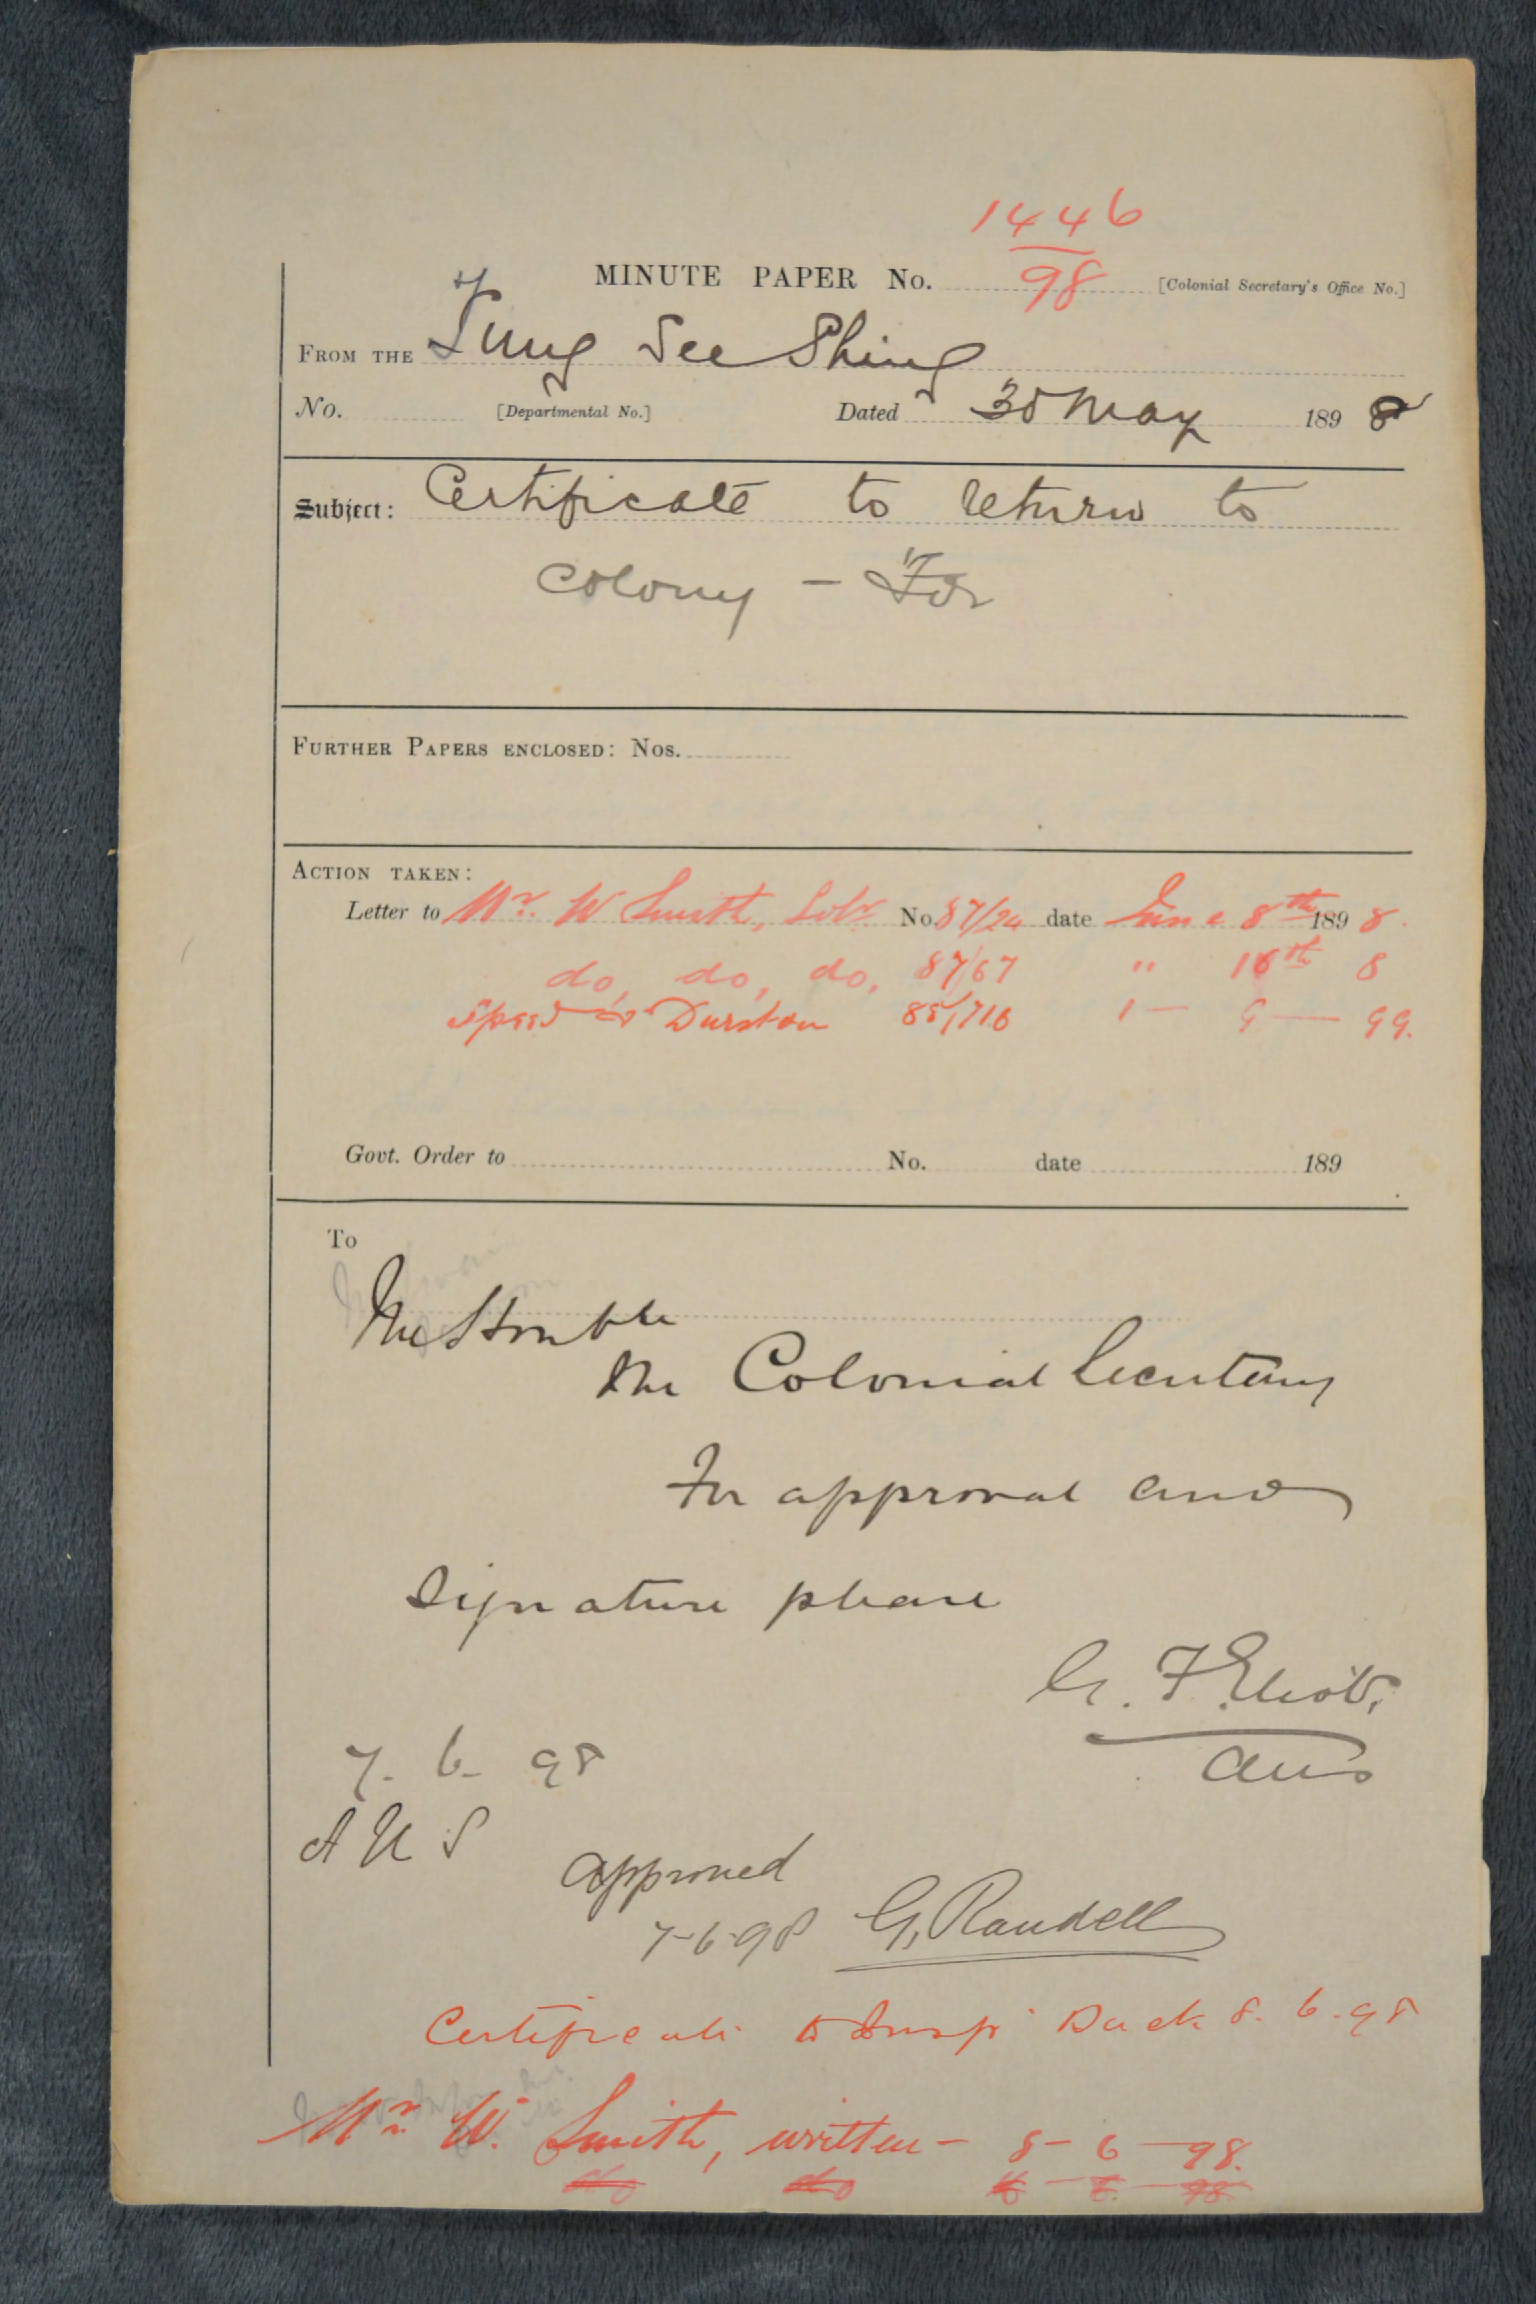 1446
MINUTE PAPER No. 98 [Colonial Secretary's Office No.]
FROM THE Fung See Shing
No. [Departmental No.] Dated 30 May 1898
Subject: Certificate to return to
colony - For
FURTHER PAPERS ENCLOSED: Nos.
ACTION TAKEN:
Letter to Mr. W Smith, Solr No. 87/24 date June 8th 1898.
do, do, do, 87/67 " 16th 8
Speed & Durston 1 - 9 - 99.
Govt. Order to No. date 189
To
The Honble
the Colonial Secretary
For approval and
signature please
G. F. Eliot,
AUS
7. 6. 98
A U S
approved
7-6-98 G. Randell
Certificate to Insp Duck 8. 6. 98
Mr. W. Smith, written - 8 - 6 - 98.
do do 16 - 6 - 98